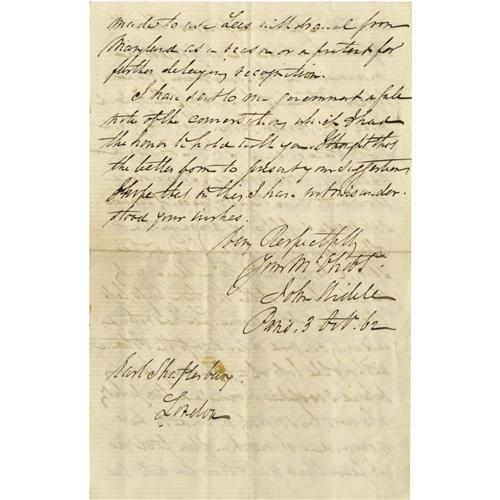 made to use Lees withdrawal from
Maryland as a reason or a pretext for
further delaying recognition.
I have sent to my government a full
note of the conversation which I had
the honor to hold with you. I thought this
the better form to present your suggestions
I hope that in this I have not misunder-
stood your wishes.
Very Respectfully
Your Mo Obdt
John Slidell
Paris, 3 Oct. 62
Earl Shaftesbury
London